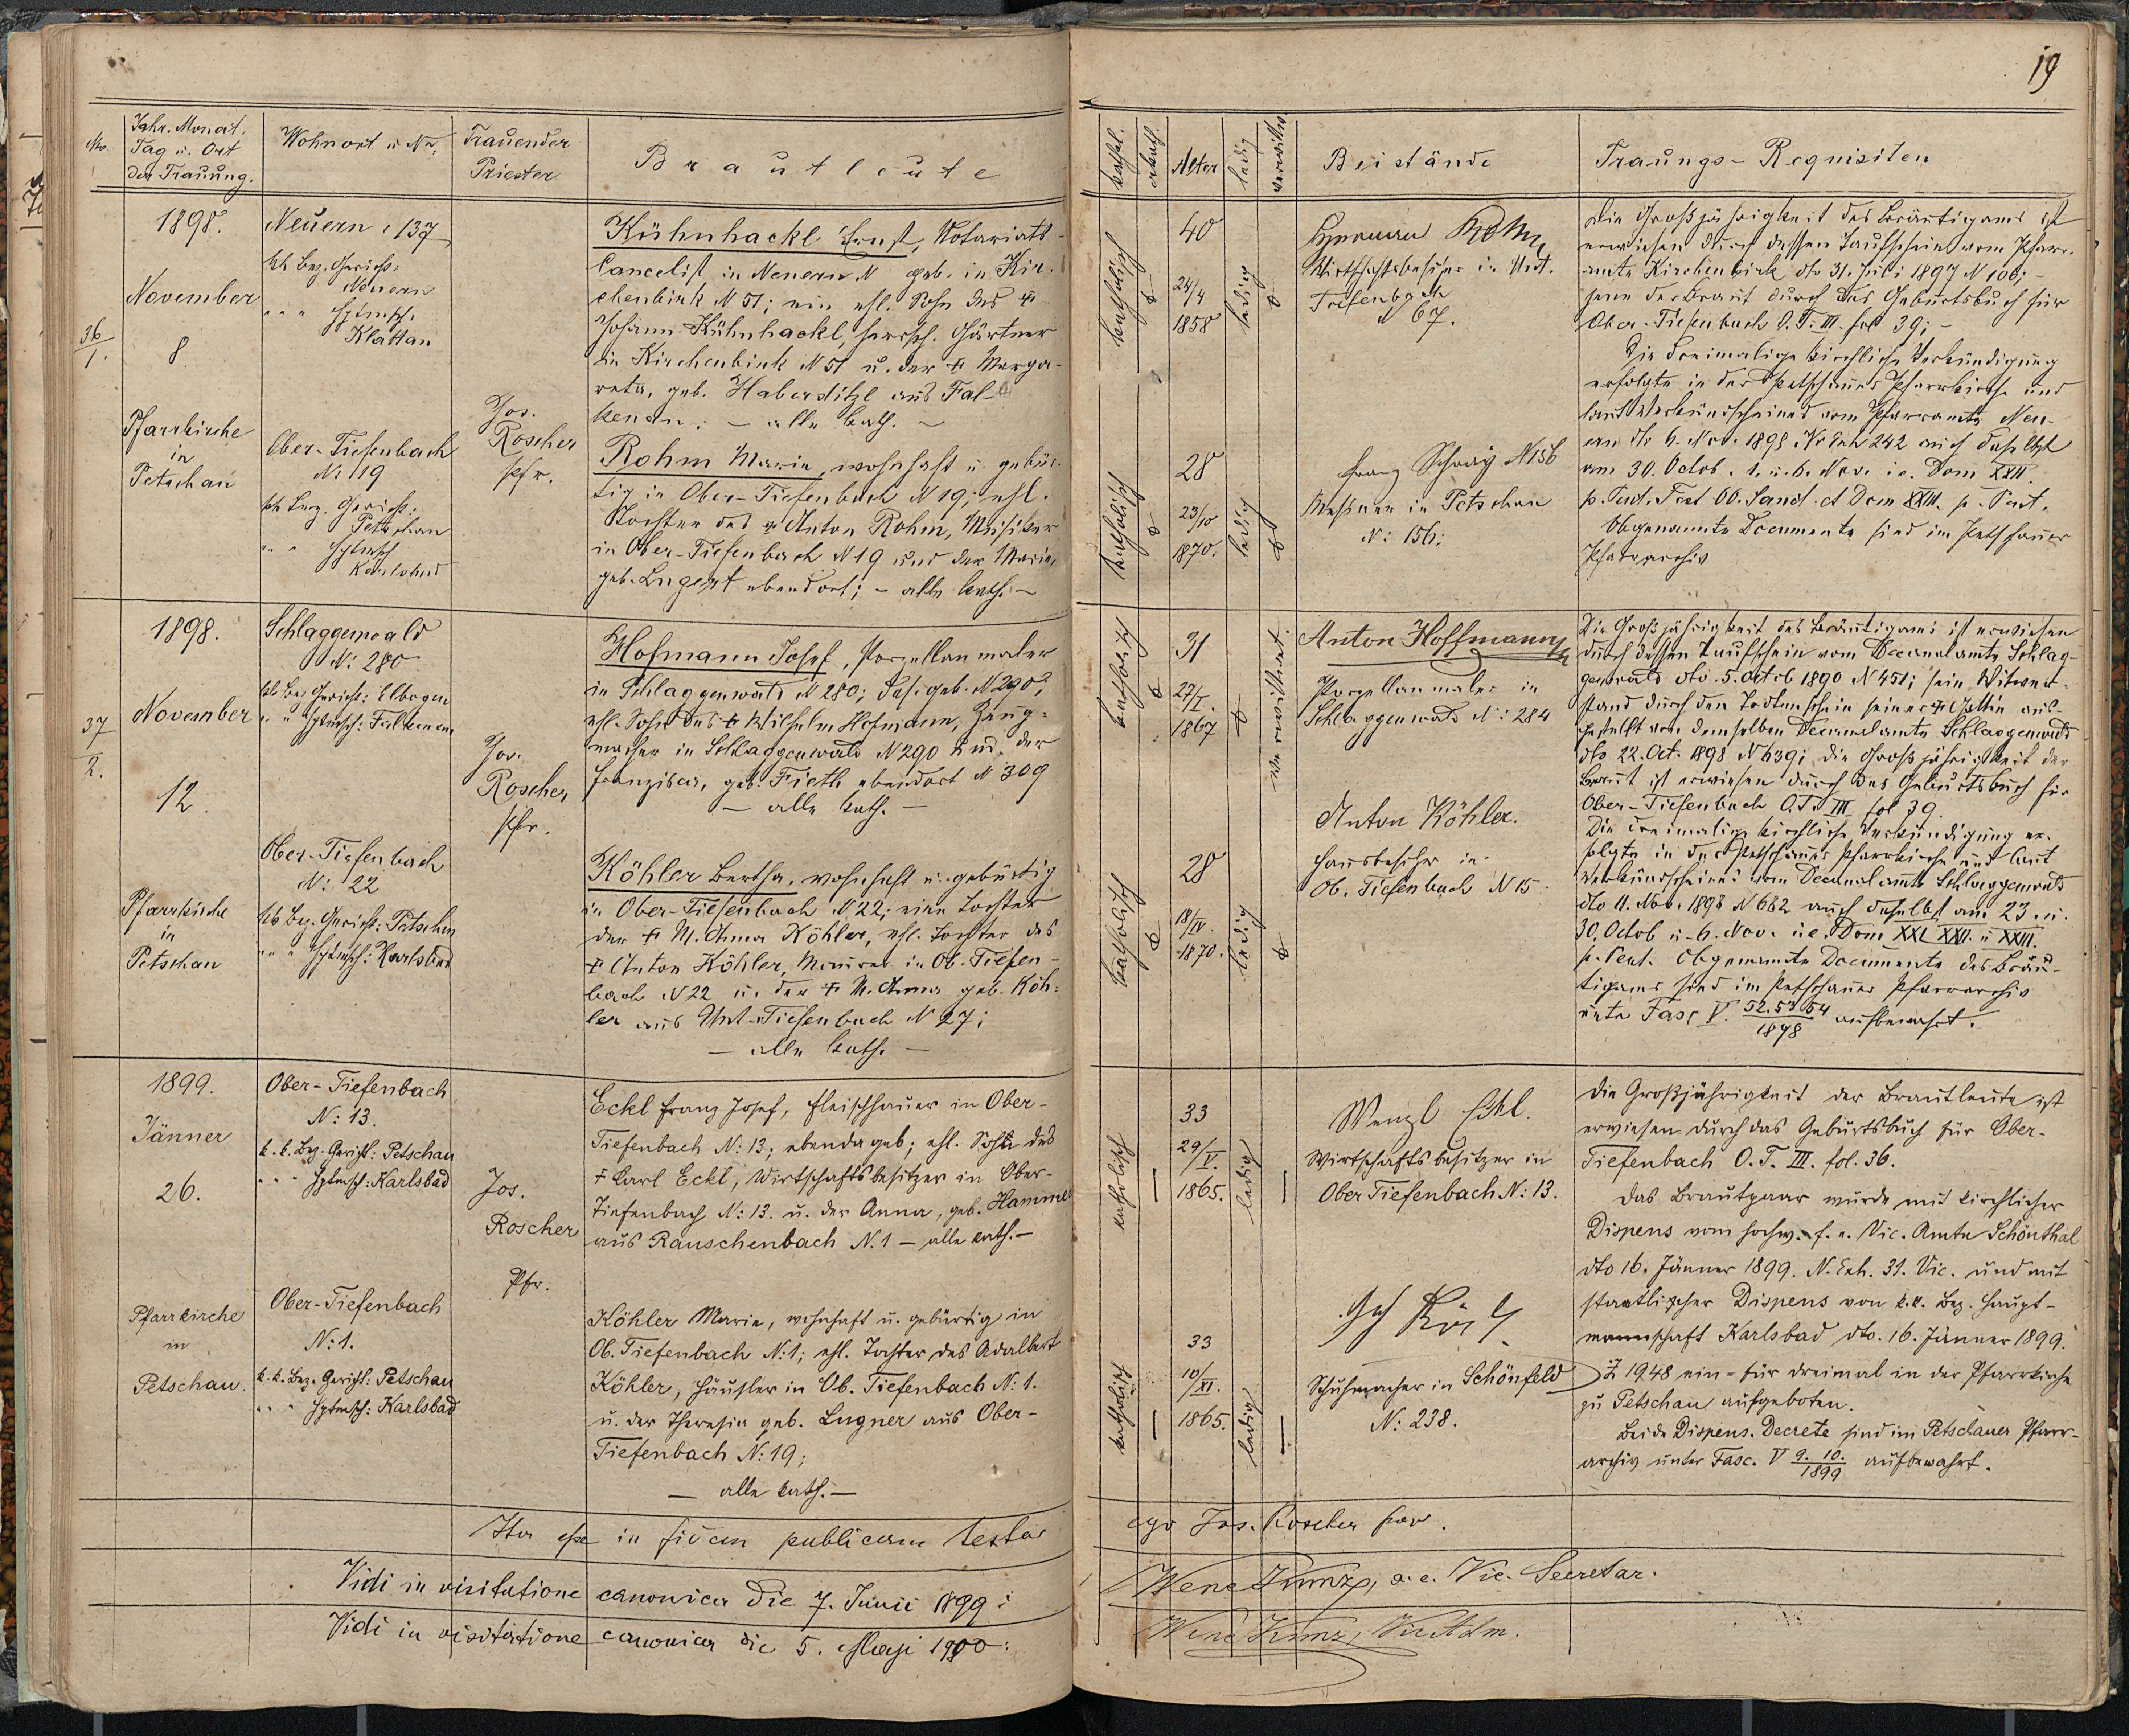 19
No.
Jahr. Monat.
Tag u. Ort
der Trauung.
Wohnort u No:
Trauender
Priester
Brautleute
kathol.
akath.
Alter
ledig
verwittw
Beistände
Trauungs-Requisiten
36/1.
1898.
November
8
Pfarrkirche
in
Petschau
Neuern 137
kk Bez. Gericht:
Neuern
" " " Hptmsch.
Klattau
Ober-Tiefenbach
N: 19
kk Bez. Gericht:
Petschau
" " Hptmsch
Karlsbad
Jos.
Roscher
Pfr.
Kühnhackl Ernst, Notariats-
cancelist in Neuern N geb. in Kir-
chenbirk N 51; ein ehl. Sohn des †
Johann Kühnhackl, herrsch. Gärtner
in Kirchenbirk N 51 u. der † Marga-
reta, geb. Haberditzl aus Fal-
kenau. – alle kath. –
Rohm Marie, wohnhaft u. gebür-
tig in Ober-Tiefenbach N 19; ehl.
Tochter des † Anton Rohm, Musiker
in Ober-Tiefenbach N 19 und der Marie,
geb. Lugert ebendort; – alle kath. –
katholisch
40
24/4
1858
ledig
katholisch
28
23/10
1870.
ledig
Hermann Rohm
Wirthschaftsbesitzer in Unt.
Tiefenbach
N 67.
Franz Schray N 156
Messner in Petschau
N: 156:
Die Großjährigkeit des Bräutigams ist
erwiesen durch dessen Taufschein vom Pfarr-
amte Kirchenbirk dto 31. Juli 1897 N 106; –
jene der Braut durch das Geburtsbuch für
Ober-Tiefenbach O. T. III. fol 39; –
Die dreimalige kirchliche Verkündigung
erfolgte in der Petschauer Pfarrkirche und
laut Verkündscheines vom Pfarramte Neu-
ern dto 6. Nov. 1898 N Exh 242 auch daselbst
am 30. Octob. 1. u. 6. Nov. i.e. Dom XXII.
p. Pent. Fest OO. Sanct. et Dom XXIII. p. Pent.
Obgenannte Documente sind im Petschauer
Pfarrarchiv
37/2.
1898.
November
12.
Pfarrkirche
in
Petschau
Schlaggenwald
N: 280
kk Bez Gericht: Elbogen
" " Hptmsch: Falkenau
Ober-Tiefenbach
N: 22
kk Bez. Gericht: Petschau
" " " Hptmsch: Karlsbad
Jos.
Roscher
Pfr.
Hofmann Josef, Porzellanmaler
in Schlaggenwald N 280; das. geb. N 290,
ehl. Sohn des † Wilhelm Hofmann, Zeug-
macher in Schlaggenwald N 290 und der
Franziska, geb. Fieth ebendort N 309
– alle kath. –
Köhler Bertha, wohnhaft u. gebürtig
in Ober-Tiefenbach N 22; eine Tochter
der † M. Anna Köhler, ehl. Tochter des
† Anton Köhler, Maurer in Ob. Tiefen-
bach N 22 u. der † M. Anna geb. Köh-
ler aus Unt.-Tiefenbach N 27;
– alle kath. –
katholisch
31
27/I.
1867
verwittwet
katholisch
28
18/IV.
1870.
ledig
Anton Hoffmann
Porzellanmaler in
Schlaggenwald N: 284
Anton Köhler.
Hausbesitzer in
Ob. Tiefenbach N 15.
Die Großjährigkeit des Bräutigams ist erwiesen
durch dessen Taufschein vom Decanalamte Schlag-
genwald dto. 5. Octob 1890 N 451; sein Witwer-
stand durch den Todtenschein seiner † Gattin aus-
gestellt von demselben Decanalamte Schlaggenwald
dto 22. Oct. 1898 N 639; die Großjährigkeit der
Braut ist erwiesen durch das Geburtsbuch für
Ober-Tiefenbach O. T. III. fol 39.
Die dreimalige kirchliche Verkündigung er-
folgte in der Petschauer Pfarrkirche und laut
Verkündscheines vom Decanalamte Schlaggenwald
dto 11. Nov. 1898 N 682 auch daselbst am 23. u.
30. Octob u. 6. Nov. i.e. Dom XXI. XXII. u XXIII.
p. Pent. Obgenannte Documente des Bräu-
tigams sind im Petschauer Pfarrarchiv
unter Fasc V. 52.53.54/1898 aufbewahrt.
1899.
Jänner
26.
Pfarrkirche
in
Petschau.
Ober-Tiefenbach
N: 13.
k. k. Bez. Gericht: Petschau
" " " Hptmsch: Karlsbad
Ober-Tiefenbach
N: 1.
k. k. Bez. Gericht: Petschau
" " " Hptmsch: Karlsbad
Jos.
Roscher
Pfr.
Eckl Franz Josef, Fleischhauer in Ober-
Tiefenbach N: 13, ebenda geb; ehl. Sohn des
† Karl Eckl, Wirtschaftsbesitzer in Ober-
Tiefenbach N: 13. u. der Anna, geb. Hammer
aus Rauschenbach N. 1 – alle kath. –
Köhler Marie, wohnhaft u. gebürtig in
Ob. Tiefenbach N: 1; ehl. Tochter des Adalbert
Köhler, Häusler in Ob. Tiefenbach N: 1.
u. der Theresia geb. Lugner aus Ober-
Tiefenbach N: 19;
– alle kath. –
katholisch
33
29/V.
1865.
ledig
katholisch
33
10/XI.
1865.
ledig
Wenzl Eckl.
Wirtschaftsbesitzer in
Ober Tiefenbach N: 13.
Schuhmacher in Schönfeld
N: 238.
Die Großjährigkeit der Brautleute ist
erwiesen durch das Geburtsbuch für Ober-
Tiefenbach O. T. III. fol. 36.
Das Brautpaar wurde mit kirchlicher
Dispens vom hochw. f. e. Vic. Amte Schönthal
dto 16. Jänner 1899. N. Exh. 31. Vic. und mit
staatlicher Dispens von k. k. Bez. Haupt-
mannschaft Karlsbad dto. 16. Jänner 1899.
Z 1948 ein- für dreimal in der Pfarrkirche
zu Petschau aufgeboten.
Beide Dispens-Decrete sind im Petschauer Pfarr-
archiv unter Fasc. V 9. 10./1899 aufbewahrt.
Ita esse in fidem publicam testor ego Jos. Roscher par.
Vidi in visitatione canonica die 7. Junii 1899: Wenc Kunz, a. e. Vic. Secretar.
Vidi in visitatione canonica die 5. Maji 1900: Wenc Kunz, Vic Adm.